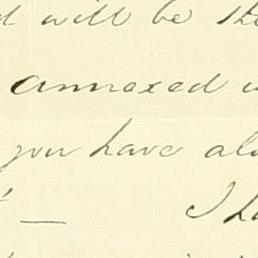 will be the
annexed
you have al
I ha